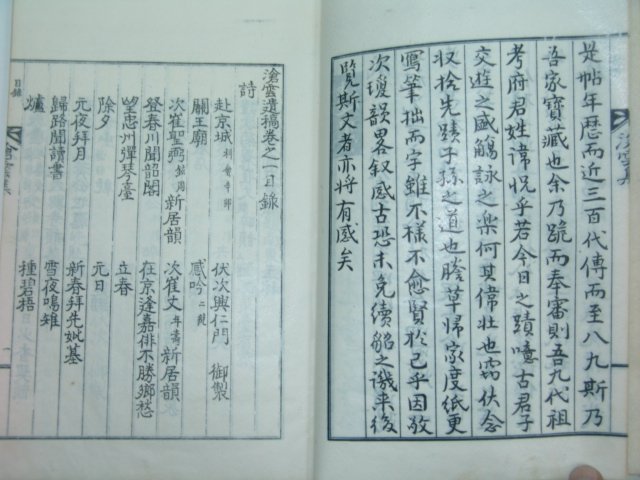 是帖年歷而近三百代傳而至八九斯乃
吾家寶藏也余乃跪而奉審則吾九代祖
考府君姓諱怳乎若今日之蹟噫古君子
交遊之盛觴詠之楽何其偉壮也窃伏念
収拾先蹟子孫之道也謄草帰家度紙更
寫筆拙而字雖不様不愈賢於已乎因敢
次瓊韻畧叙感古恐未免續貂之譏来後
覧斯文者亦将有感矣
滄雲集
滄雲遺稿巻之一目録
詩
赴京城 伏次興仁門 御製
關王廟 感吟二號
次崔聖燕 新居韻 次崔丈 新居韻
登春川聞韶閣 在京逢嘉俳不勝鄉愁
望忠州彈琴臺 立春
除夕 元日
元夜拜月 新春拜先妣墓
歸路聞讀書 雪夜鳴雉
爐 種碧梧
目録
滄雲集
一